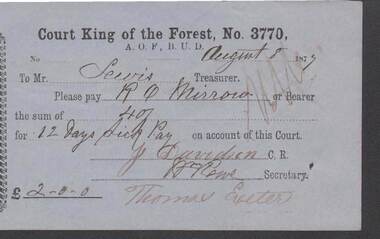 Court King of the Forest, No. 3770,
A. O. F., B. U. D.
No August 8 187
To Mr. Lewis Treasurer.
Please pay R O Mirrow or Bearer
the sum of 40/
for 12 Days Sick Pay on account of this Court.
J Davidson C. R.
Secretary.
£ 2-0-0
Thomas Exeter